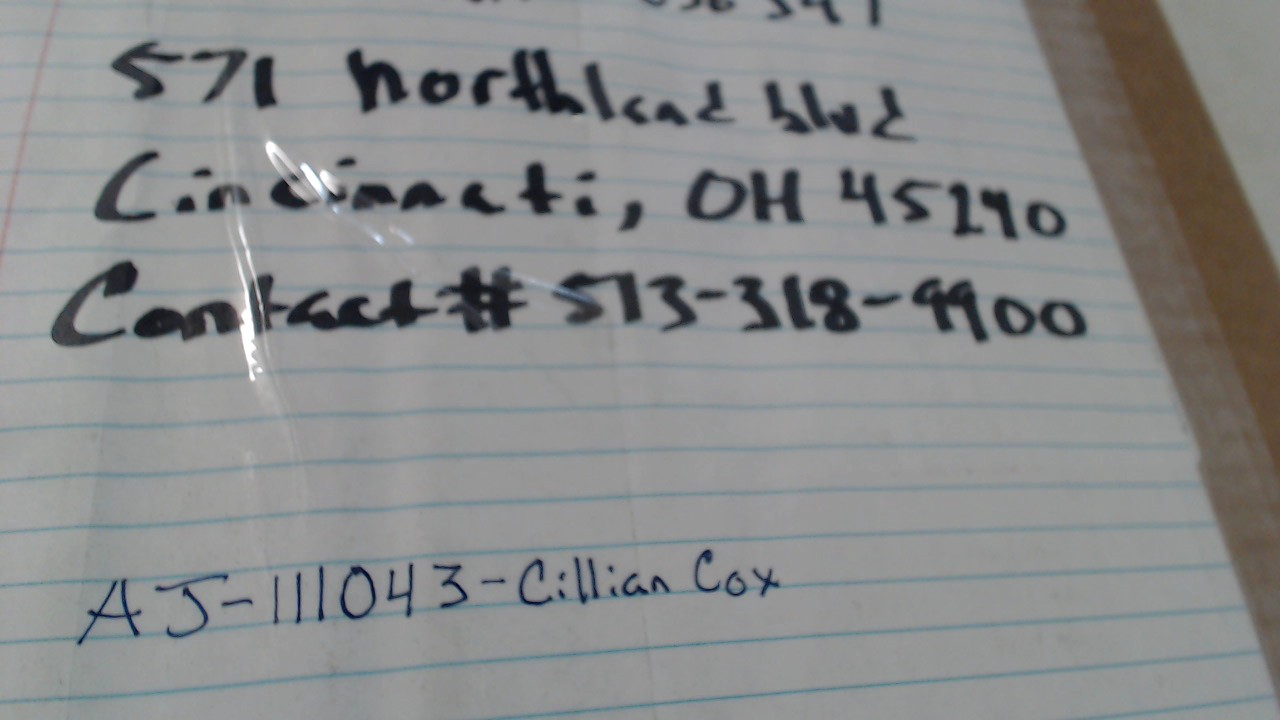 571 Northland blvd
Cincinnati, OH 45240
Contact # 513-318-9900
AJ-111043-Cillian Cox